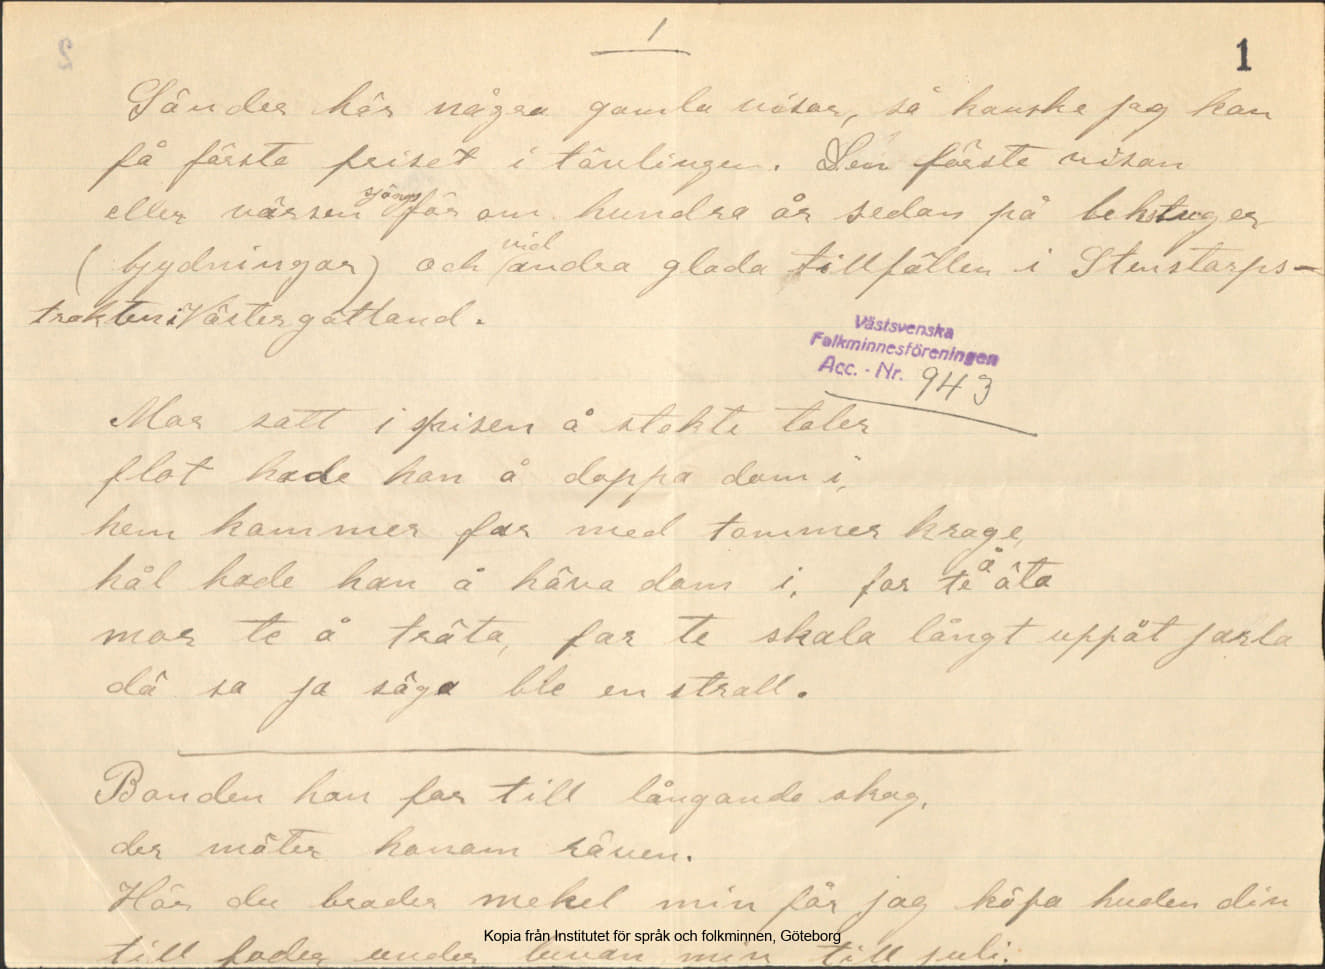 1
1
Sänder här några gamla visor, så kanske jag kan
få första priset i tävlingen. Den första visan
eller värsen sjöngs för om hundra år sedan på bekstuger
(bjydningar) och vid andra glada tillfällen i Stenstorps-
trakten i Västergötland.
Västsvenska
Folkminnesföreningen
Acc. - Nr. 943
Mor satt i spisen å stekte toler
flot hade hon å doppa dom i,
hem kommer far med tommer krage,
hål hade han å häva dom i. far te å äta
mor te å träta, far te skala långt uppåt jarla
dä sa ja säga ble en strall.
Bonden han for till långande skog.
der möter honom räven.
Hör du broder mekel min får jag köpa huden din
till foder under luvan min till juli.
Kopia från Institutet för språk och folkminnen, Göteborg